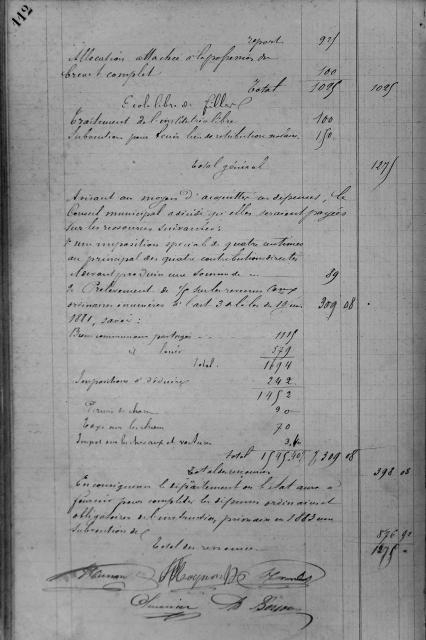 112
report 925
Allocation attachée à la possession du
brevet complet 100
Total 1025 1025
Ecole libre de filles
Traitement de l'institutrice libre 100
Subvention pour tenir lieu de rétribution scolaire 150
Total général 1275
Avisant au moyen d'acquitter ces dépenses, le
Conseil municipal a décidé qu'elles seraient payées
sur les ressources suivantes:
1° une imposition spécial de quatre centimes
au principal des quatre contributions directes
devant produire une somme de 89
2° Prélèvement de sur les revenus
ordinaires énumérés à l'art 3 de la loi du 16 juin 309 08
1881, savoir:
Biens communaux partagés 1115
id loués 579
Total 1694
Impositions à déduire 242
1452
Permis de chasse 20
Taxe sur les chiens 70
Impôt sur les chevaux et voitures
Total 309 08
Total des ressources 398 08
En conséquence le département ou l'état aura à
fournir pour compléter les dépenses ordinaires et
obligatoires de l'instruction primaire en 1883 une
subvention de 876 92
Total des ressources 1275